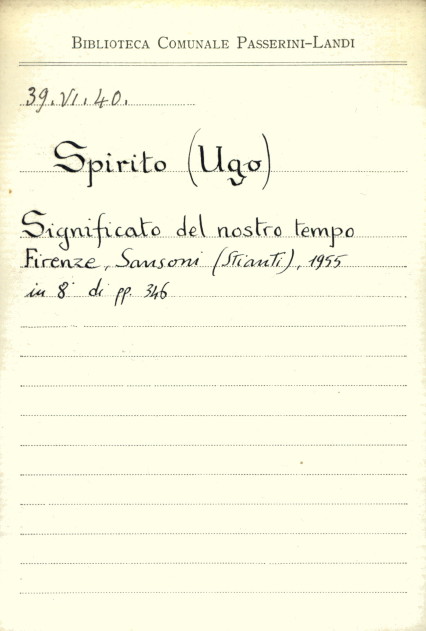 BIBLIOTECA COMUNALE PASSERINI-LANDI
39.VI.40.
Spirito (Ugo)
Significato del nostro tempo
Firenze, Sansoni (Stianti), 1955
in 8° di pp. 346